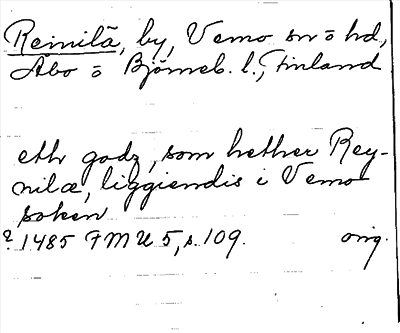 Reinilä, by, Vemo sn o hd,
Åbo o Björneb. l., Finland
eth godz, som hether Rey-
nilæ, liggiendis i Vemo
soken
? 1485 FMU 5, s. 109. orig.